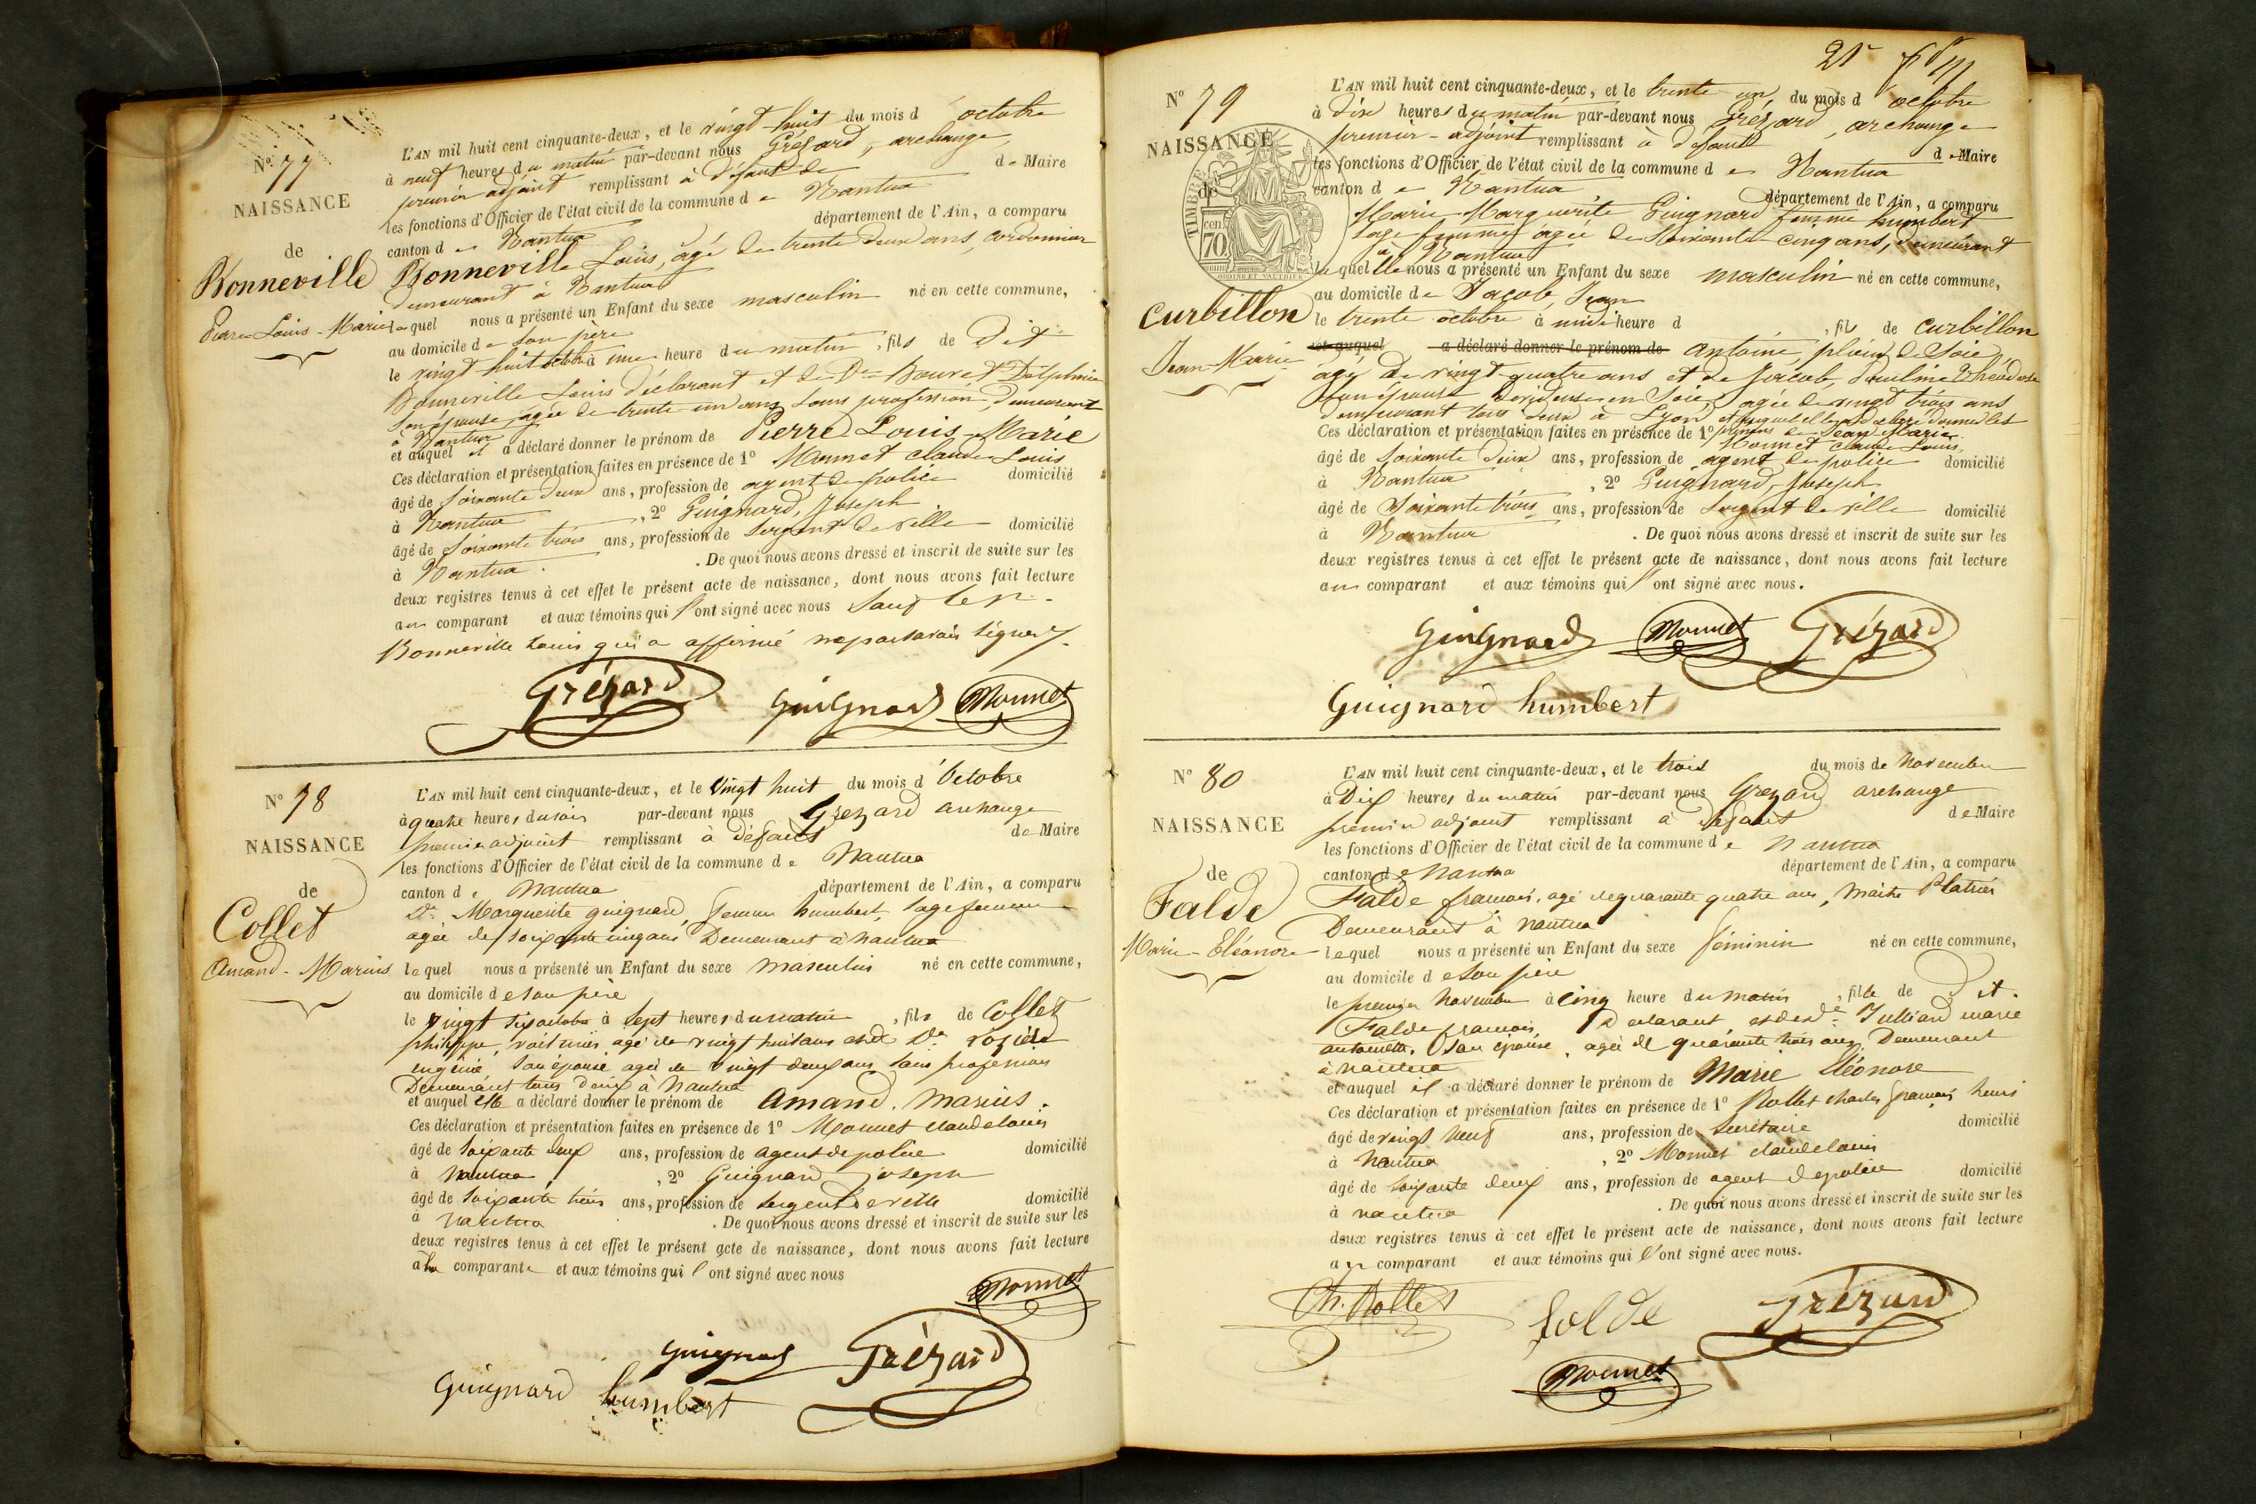 N° 77
NAISSANCE
de
Bonneville
Pierre-Louis-Marie
L'AN mil huit cent cinquante-deux, et le vingt-huit du mois d'octobre
à neuf heures du matin par-devant nous Grézard, archange,
premier adjoint remplissant à défaut de de Maire
les fonctions d'Officier de l'état civil de la commune de Nantua
canton de Nantua département de l'Ain, a comparu
Bonneville Louis, âgé de trente deux ans, cordonnier
demeurant à Nantua
lequel nous a présenté un Enfant du sexe masculin né en cette commune,
au domicile de son père
le vingt huit octobre à une heure du matin, fils de Dit
Bonneville Louis déclarant et de De Bouret Delphine
son épouse, agée de trente un ans, sans profession, demeurant
à Nantua
et auquel il a déclaré donner le prénom de Pierre Louis-Marie
Ces déclaration et présentation faites en présence de 1° Monnet claude Louis
âgé de soixante deux ans, profession de agent de police domicilié
à Nantua, 2° Guignard, Joseph
âgé de soixante trois ans, profession de sergent de ville domicilié
à Nantua. De quoi nous avons dressé et inscrit de suite sur les
deux registres tenus à cet effet le présent acte de naissance, dont nous avons fait lecture
au comparant et aux témoins qui l'ont signé avec nous sauf le
Bonneville Louis qui a affirmé ne pas savoir signer.
Grézard Guignard Monnet
N° 78
NAISSANCE
de
Collet
Amand-Marius
L'AN mil huit cent cinquante-deux, et le vingt huit du mois d'Octobre
à quatre heures du soir par-devant nous Grezard archange
premier adjoint remplissant à défaut de Maire
les fonctions d'Officier de l'état civil de la commune de Nantua
canton de Nantua département de l'Ain, a comparu
De Marguerite guignard, femme humbert, sage femme
agée de soixante cinq ans Demeurant à Nantua
laquel nous a présenté un Enfant du sexe masculin né en cette commune,
au domicile de son père
le vingt six octobre à sept heures du matin, fils de Collet
philippe, voiturier agé de vingt huit ans et de De
eugénie son épouse agée de vingt deux ans sans profession
Demeurant tous deux à Nantua
et auquel elle a déclaré donner le prénom de Amand. Marius.
Ces déclaration et présentation faites en présence de 1° Monnet claude louis
âgé de soixante deux ans, profession de agent de police domicilié
à Nantua, 2° Guignard joseph
âgé de soixante trois ans, profession de sergent de ville domicilié
à Nantua. De quoi nous avons dressé et inscrit de suite sur les
deux registres tenus à cet effet le présent acte de naissance, dont nous avons fait lecture
à la comparante et aux témoins qui l'ont signé avec nous
Monnet
Guignard Grézard
Guignard humbert
21
N° 79
NAISSANCE
de
TIMBRE
70 cen
Curbillon
Jean-Marie
L'AN mil huit cent cinquante-deux, et le trente un du mois d'octobre
à dix heures du matin par-devant nous Grézard, archange
premier-adjoint remplissant à défaut de Maire
les fonctions d'Officier de l'état civil de la commune de Nantua
canton de Nantua département de l'Ain, a comparu
Marie-Marguerite Guignard femme humbert
sage-femme agée de soixante cinq ans, demeurant
à Nantua
laquelle nous a présenté un Enfant du sexe masculin né en cette commune,
au domicile de Jacob, Jean
le trente octobre à midi heure d, fils de Curbillon
et auquel a déclaré donner le prénom de antoine, plieur de soie,
agé de vingt-quatre ans et de Jacob, Pauline Théodore
son épouse Dévideuse en soie, agée de vingt trois ans
demeurant tous deux à Lyon et auquel elle a déclaré donner les
prénoms de Jean Marie
Ces déclaration et présentation faites en présence de 1° Monnet claude Louis,
âgé de soixante deux ans, profession de agent de police domicilié
à Nantua, 2° Guignard, Joseph
âgé de soixante trois ans, profession de sergent de ville domicilié
à Nantua. De quoi nous avons dressé et inscrit de suite sur les
deux registres tenus à cet effet le présent acte de naissance, dont nous avons fait lecture
au comparant et aux témoins qui l'ont signé avec nous.
Guignard Monnet Grézard
Guignard humbert
N° 80
NAISSANCE
de
Falde
Marie-Eléonore
L'AN mil huit cent cinquante-deux, et le trois du mois de Novembre
à Dix heures du matin par-devant nous Grezard archange
premier adjoint remplissant à défaut de Maire
les fonctions d'Officier de l'état civil de la commune de Nantua
canton de Nantua département de l'Ain, a comparu
Falde francois, agé de quarante quatre ans, maitre Platrier
Demeurant à Nantua
lequel nous a présenté un Enfant du sexe féminin né en cette commune,
au domicile de son père
le premier Novembre à cinq heure du matin, fille de Dit.
Falde francois, Declarant et de De Julliard marie
antoinette, son épouse, agée de quarante trois ans, Demeurant
à Nantua
et auquel il a déclaré donner le prénom de Marie Eléonore
Ces déclaration et présentation faites en présence de 1° Rollet charles francois henri
âgé de vingt neuf ans, profession de secrétaire domicilié
à Nantua, 2° Monnet claude louis
âgé de soixante deux ans, profession de agent de police domicilié
à Nantua. De quoi nous avons dressé et inscrit de suite sur les
deux registres tenus à cet effet le présent acte de naissance, dont nous avons fait lecture
au comparant et aux témoins qui l'ont signé avec nous.
Ch. Rollet folde Grézard
Monnet